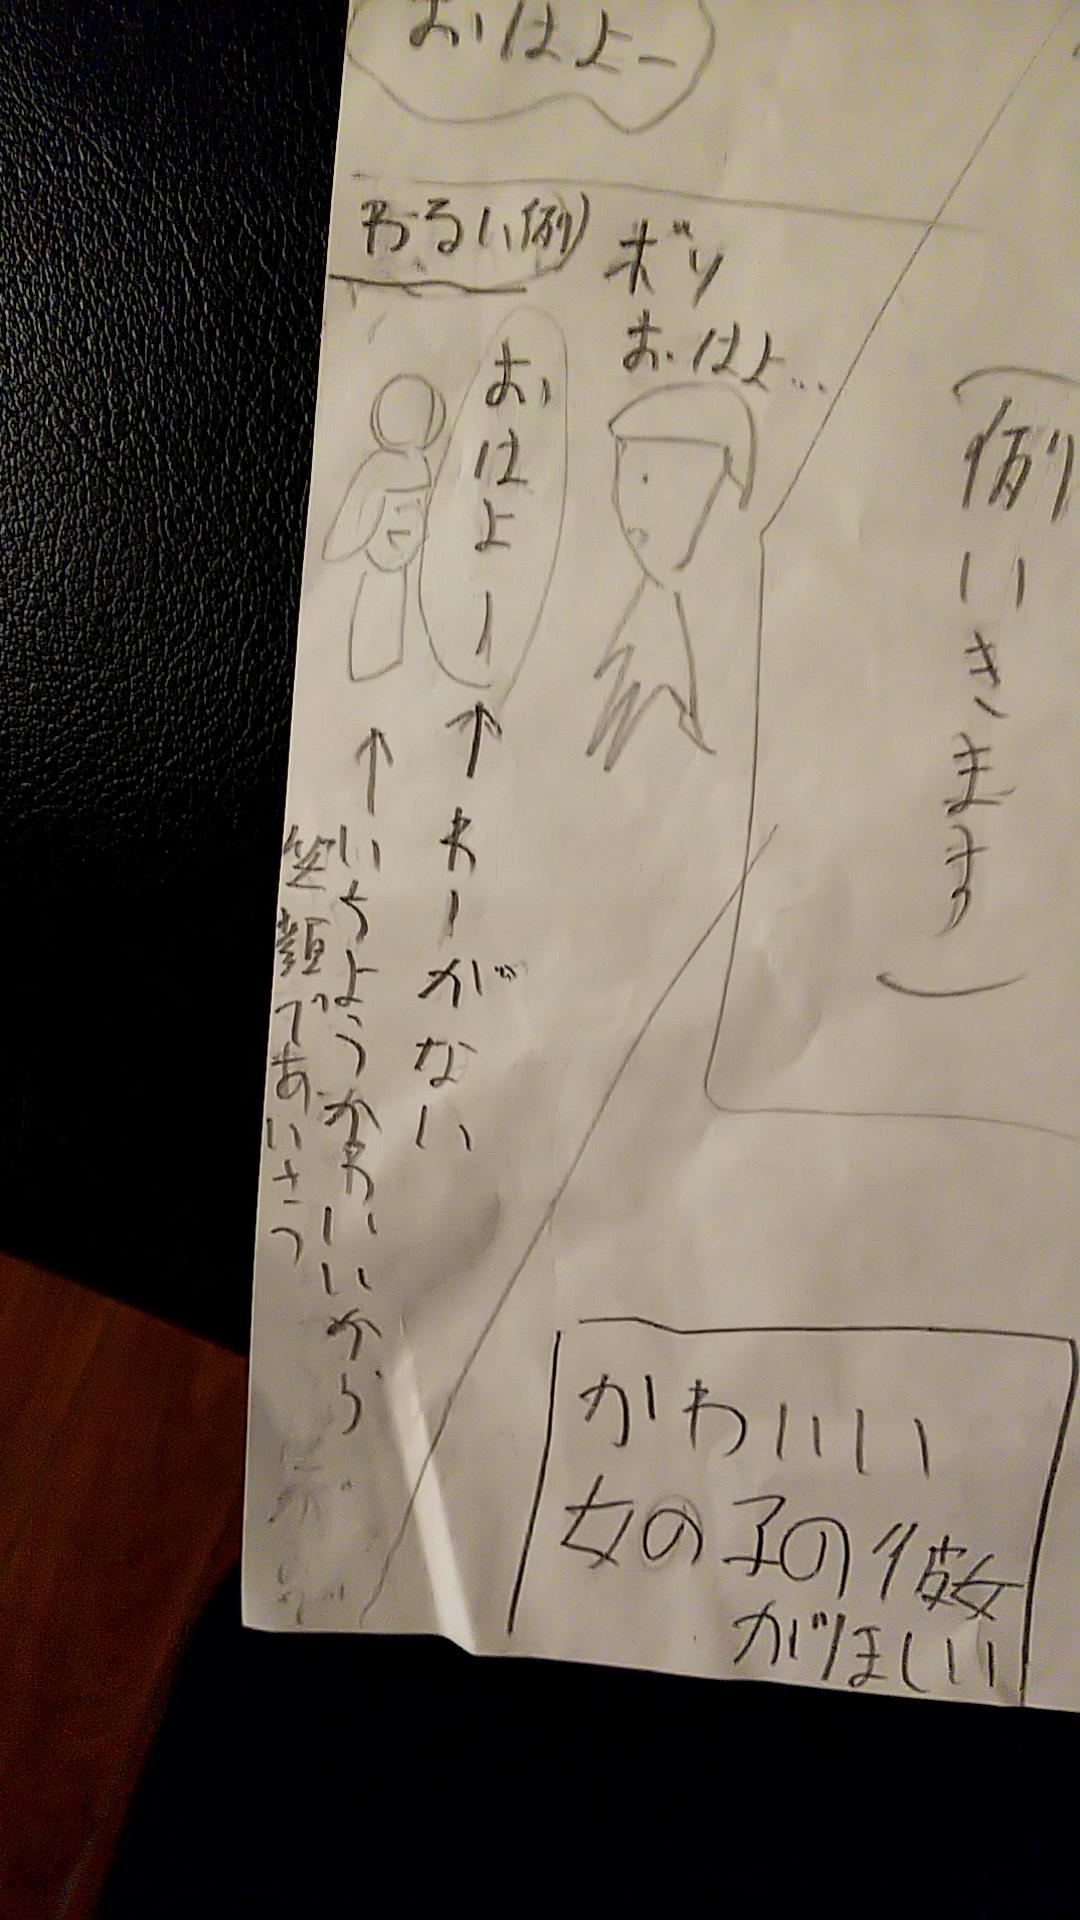 おはよー
わるい例)
ボソ
おはよ…
おはよー
例いきます
やーがない
いちようかわいいから
笑顔であいさつ
かわいい
女の子の彼女
がほしい